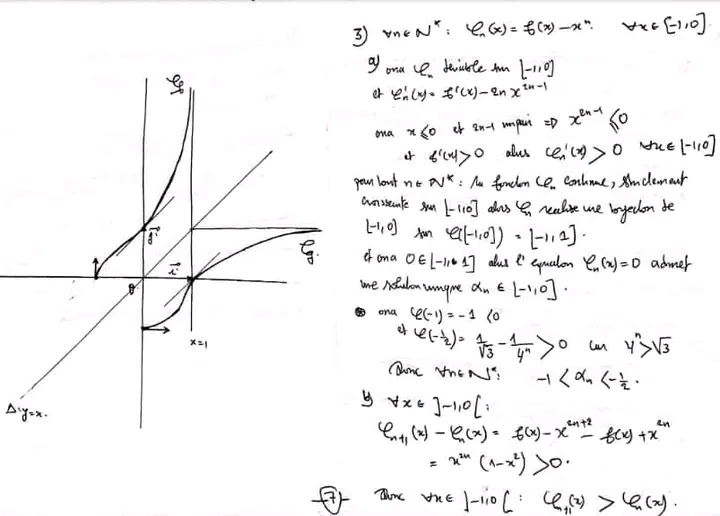 3) ∀n∈N* : φn(x) = f(x) – xⁿ. ∀x∈[-1,0]
a) ona φn dérivable sur [-1,0]
et φ'n(x) = f'(x) – 2n x^{2n-1}
ona x ≤ 0 et 2n-1 impair ⇒ x^{2n-1} ≤ 0
et f'(x) > 0 alors φ'n(x) > 0 ∀x∈[-1,0]
pour tout n∈N* : la fonction φn continue, strictement
croissante sur [-1,0] alors φn réalise une bijection de
[-1,0] sur φ([-1,0]) = [-1,1].
et ona 0∈[-1,1] alors l'équation φn(x)=0 admet
une solution unique αn ∈ [-1,0].
ona φ(-1) = -1 < 0
et φ(-1/2) = 1/√3 – 1/4ⁿ > 0 car 4ⁿ > √3
Donc ∀n∈N* : -1 < αn < -1/2.
b) ∀x∈]-1,0[ :
φn+1(x) – φn(x) = f(x) – x^{2n+2} – f(x) + x^{2n}
= x^{2n} (1-x²) > 0.
Donc ∀x∈]-1,0[ : φn+1(x) > φn(x).
7
Cf
j
Cg
i
0
x=1
Δ: y=x.